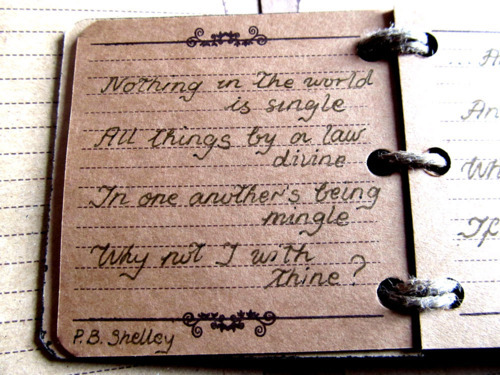 Nothing in the world
is single
All things by a law
divine
In one another's being
mingle
Why not I with
thine?
P.B. Shelley
An
Wh
If